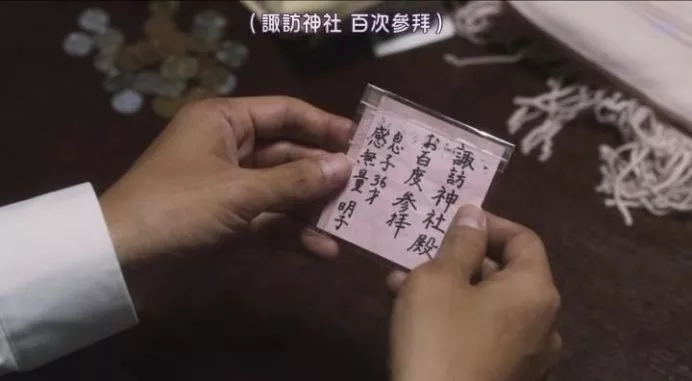 （諏訪神社 百次參拜）
諏訪神社殿
お百度参拝
息子36才
感無量 明子